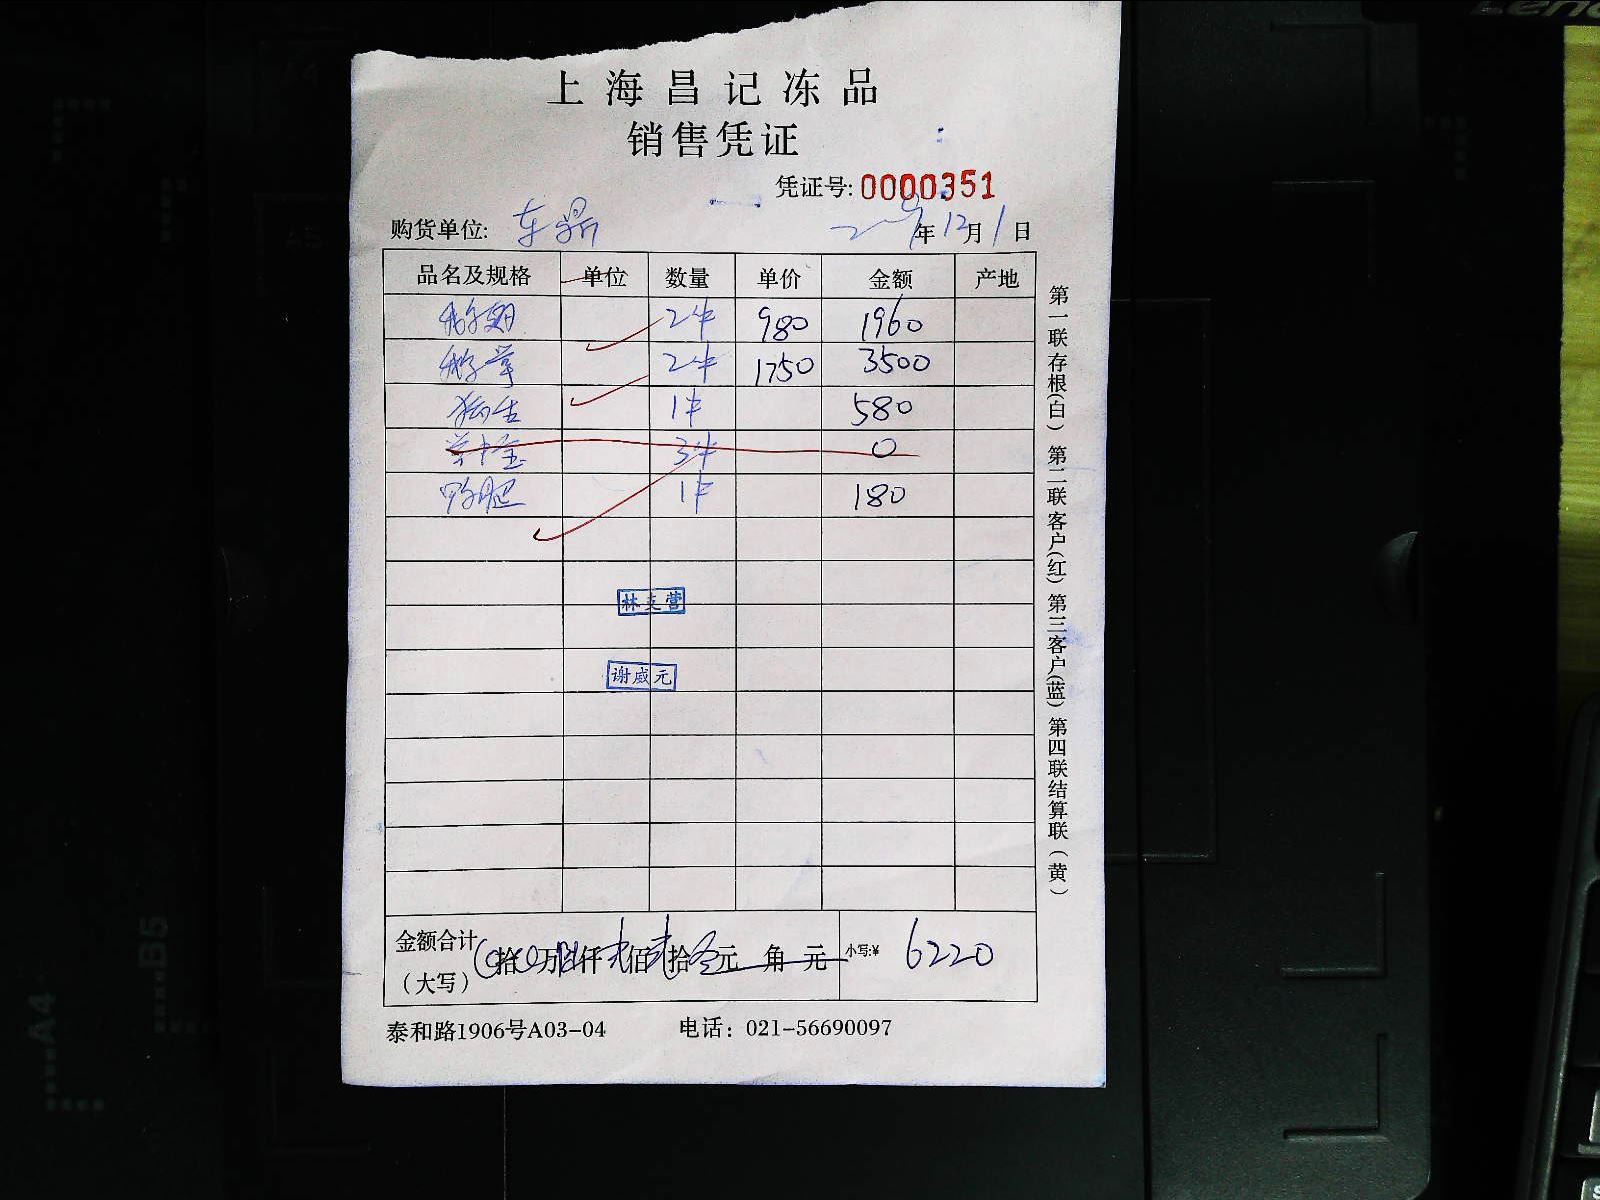 上海昌记冻品
销售凭证
凭证号: 0000351
购货单位: 东鼎 年 12 月 1 日
品名及规格 单位 数量 单价 金额 产地
2件 980 1960
2件 1750 3500
1件 580
3件 0
1件 180
林支营
谢威元
金额合计
(大写) 拾 万 仟 佰 拾 元 角 元 小写:¥ 6220
泰和路1906号A03-04 电话: 021-56690097
第一联存根(白) 第二联客户(红) 第三客户(蓝) 第四联结算联(黄)
A4
B5
Leno